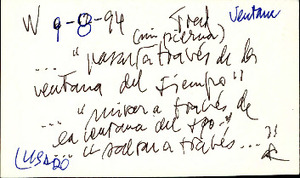 W 9-8-94 Fred Ventana
(sin pierna)
... "pasar a través de la
ventana del tiempo"
... "mirar a través de
la ventana del tpo."
(USADO) "saltar a través...?!